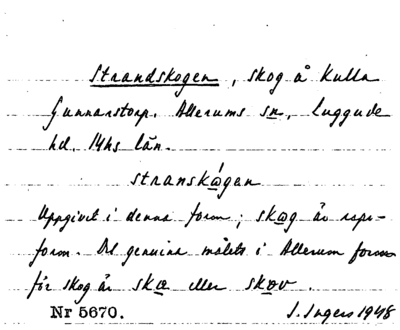 Strandskogen, skog å Kulla
Gunnarstorp. Allerums sn, Luggude
hd. Mhs län.
stranskǻgen
Uppgivet i denna form; skøg är rspr-
form. Det genuina målets i Allerum form
för skog är skø eller skov.
Nr 5670. J. Ingers 1948